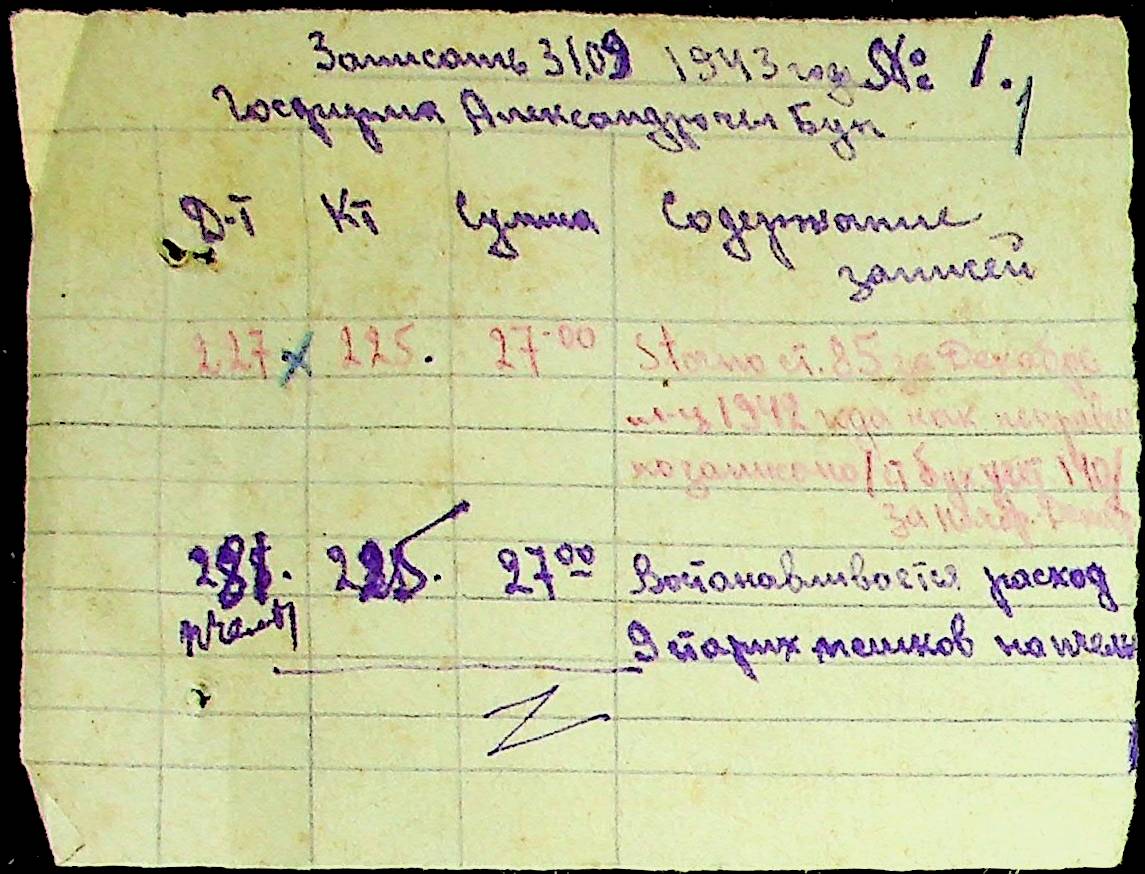 Записать 31.09 1943 год № 1.
Госфирма Александрочел Бук
Д-т Кт Сумма Содержание
записей
227 225. 27-00 Storno ст. 85 за Декабрь
м-ц 1942 года как неправи
/ст Бух 140/
за
281. 225. 27 00 Востанавливостся расход
пчелы 9 старих мешков на пчелы